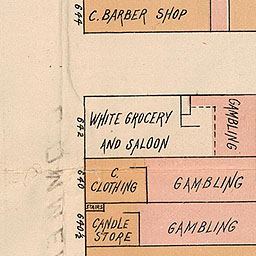 644
C. BARBER SHOP
642
WHITE GROCERY
AND SALOON
GAMBLING
640
C.
CLOTHING
GAMBLING
STAIRS
640½
CANDLE
STORE
GAMBLING